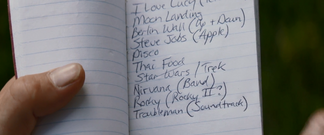 I Love Lucy
Moon Landing
Berlin Wall (Up + Down)
Steve Jobs (Apple)
Disco
Thai Food
Star Wars / Trek
Nirvana (Band)
Rocky (Rocky II?)
Troutman (Soundtrack)